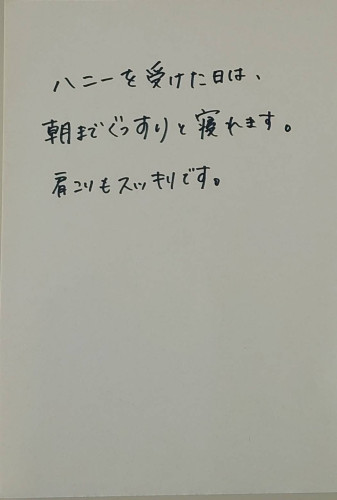 ハニーを受けた日は、
朝までぐっすりと寝れます。
肩こりもスッキリです。